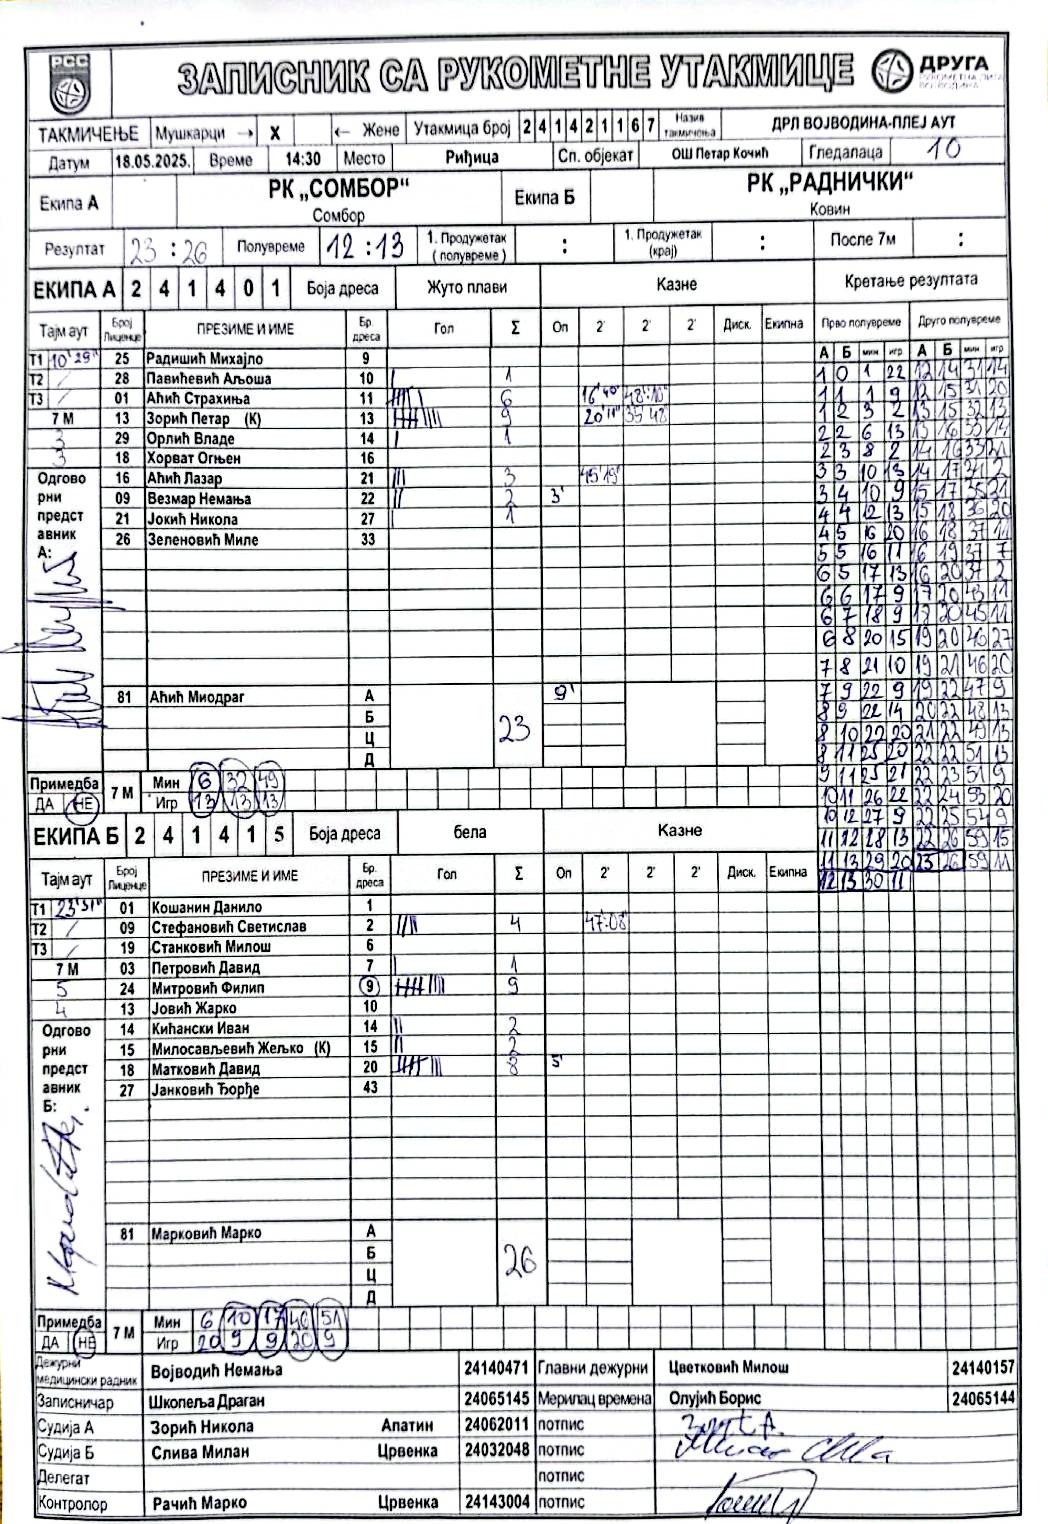 РСС
ЗАПИСНИК СА РУКОМЕТНЕ УТАКМИЦЕ
ДРУГА
ТАКМИЧЕЊЕ Мушкарци → X ← Жене Утакмица број 2 4 1 4 2 1 1 6 7 Назив такмичења ДРЛ ВОЈВОДИНА-ПЛЕЈ АУТ
Датум 18.05.2025. Време 14:30 Место Риђица Сп. објекат ОШ Петар Кочић Гледалаца 10
Екипа А РК „СОМБОР“ Сомбор Екипа Б РК „РАДНИЧКИ“ Ковин
Резултат 23 : 26 Полувреме 12 : 13 1. Продужетак (полувреме) : 1. Продужетак (крај) : После 7м :
ЕКИПА А 2 4 1 4 0 1 Боја дреса Жуто плави Казне Кретање резултата
Тајм аут Број Лиценце ПРЕЗИМЕ И ИМЕ Бр. дреса Гол Σ Оп 2' 2' 2' Диск. Екипна Прво полувреме Друго полувреме
А Б мин игр А Б мин игр
T1 10'29" 25 Радишић Михајло 9
T2 / 28 Павићевић Аљоша 10 1
T3 / 01 Аћић Страхиња 11 6 16'40" 48'10"
7 М 13 Зорић Петар (К) 13 9 20'11" 35'42
3 29 Орлић Владе 14 1
3 18 Хорват Огњен 16
16 Аћић Лазар 21 3 45'19"
09 Везмар Немања 22 2 3'
21 Јокић Никола 27 1
26 Зеленовић Миле 33
Одгово рни предст авник А:
81 Аћић Миодраг А 9'
Б
Ц
Д
23
1 0 1 22 12 14 31 14
1 1 1 9 12 15 31 20
1 2 3 2 13 15 32 13
2 2 6 13 13 16 33 14
2 3 8 2 14 16 33 21
3 3 10 13 14 17 34 2
3 4 10 9 15 17 35 21
4 4 12 13 15 18 36 20
4 5 16 20 16 18 37 11
5 5 16 11 16 19 37 7
6 5 17 13 16 20 37 2
6 6 17 9 17 20 43 11
6 7 18 9 18 20 45 11
6 8 20 15 19 20 46 27
7 8 21 10 19 21 46 20
7 9 22 9 19 22 47 9
8 9 22 14 20 22 48 13
8 10 22 20 21 22 49 13
8 11 25 20 22 22 51 13
9 11 25 21 22 23 51 9
10 11 26 22 22 24 53 20
10 12 27 9 22 25 54 9
11 12 28 13 22 26 59 15
11 13 29 20 23 26 59 11
12 13 30 11
Примедба ДА НЕ 7 М Мин 6 32 49
Игр 13 13 13
ЕКИПА Б 2 4 1 4 1 5 Боја дреса бела Казне
Тајм аут Број Лиценце ПРЕЗИМЕ И ИМЕ Бр. дреса Гол Σ Оп 2' 2' 2' Диск. Екипна
T1 23'51" 01 Кошанин Данило 1
T2 / 09 Стефановић Светислав 2 4 47:08
T3 / 19 Станковић Милош 6
7 М 03 Петровић Давид 7 1
5 24 Митровић Филип 9 9
4 13 Јовић Жарко 10
14 Кићански Иван 14 2
15 Милосављевић Жељко (К) 15 2
18 Матковић Давид 20 8 5'
27 Јанковић Ђорђе 43
Одгово рни предст авник Б:
81 Марковић Марко А
Б
Ц
Д
26
Примедба ДА НЕ 7 М Мин 6 10 17 46 51
Игр 20 9 9 20 9
Дежурни медицински радник Војводић Немања 24140471 Главни дежурни Цветковић Милош 24140157
Записничар Шкопеља Драган 24065145 Мерилац времена Олујић Борис 24065144
Судија А Зорић Никола Апатин 24062011 потпис
Судија Б Слива Милан Црвенка 24032048 потпис
Делегат потпис
Контролор Рачић Марко Црвенка 24143004 потпис